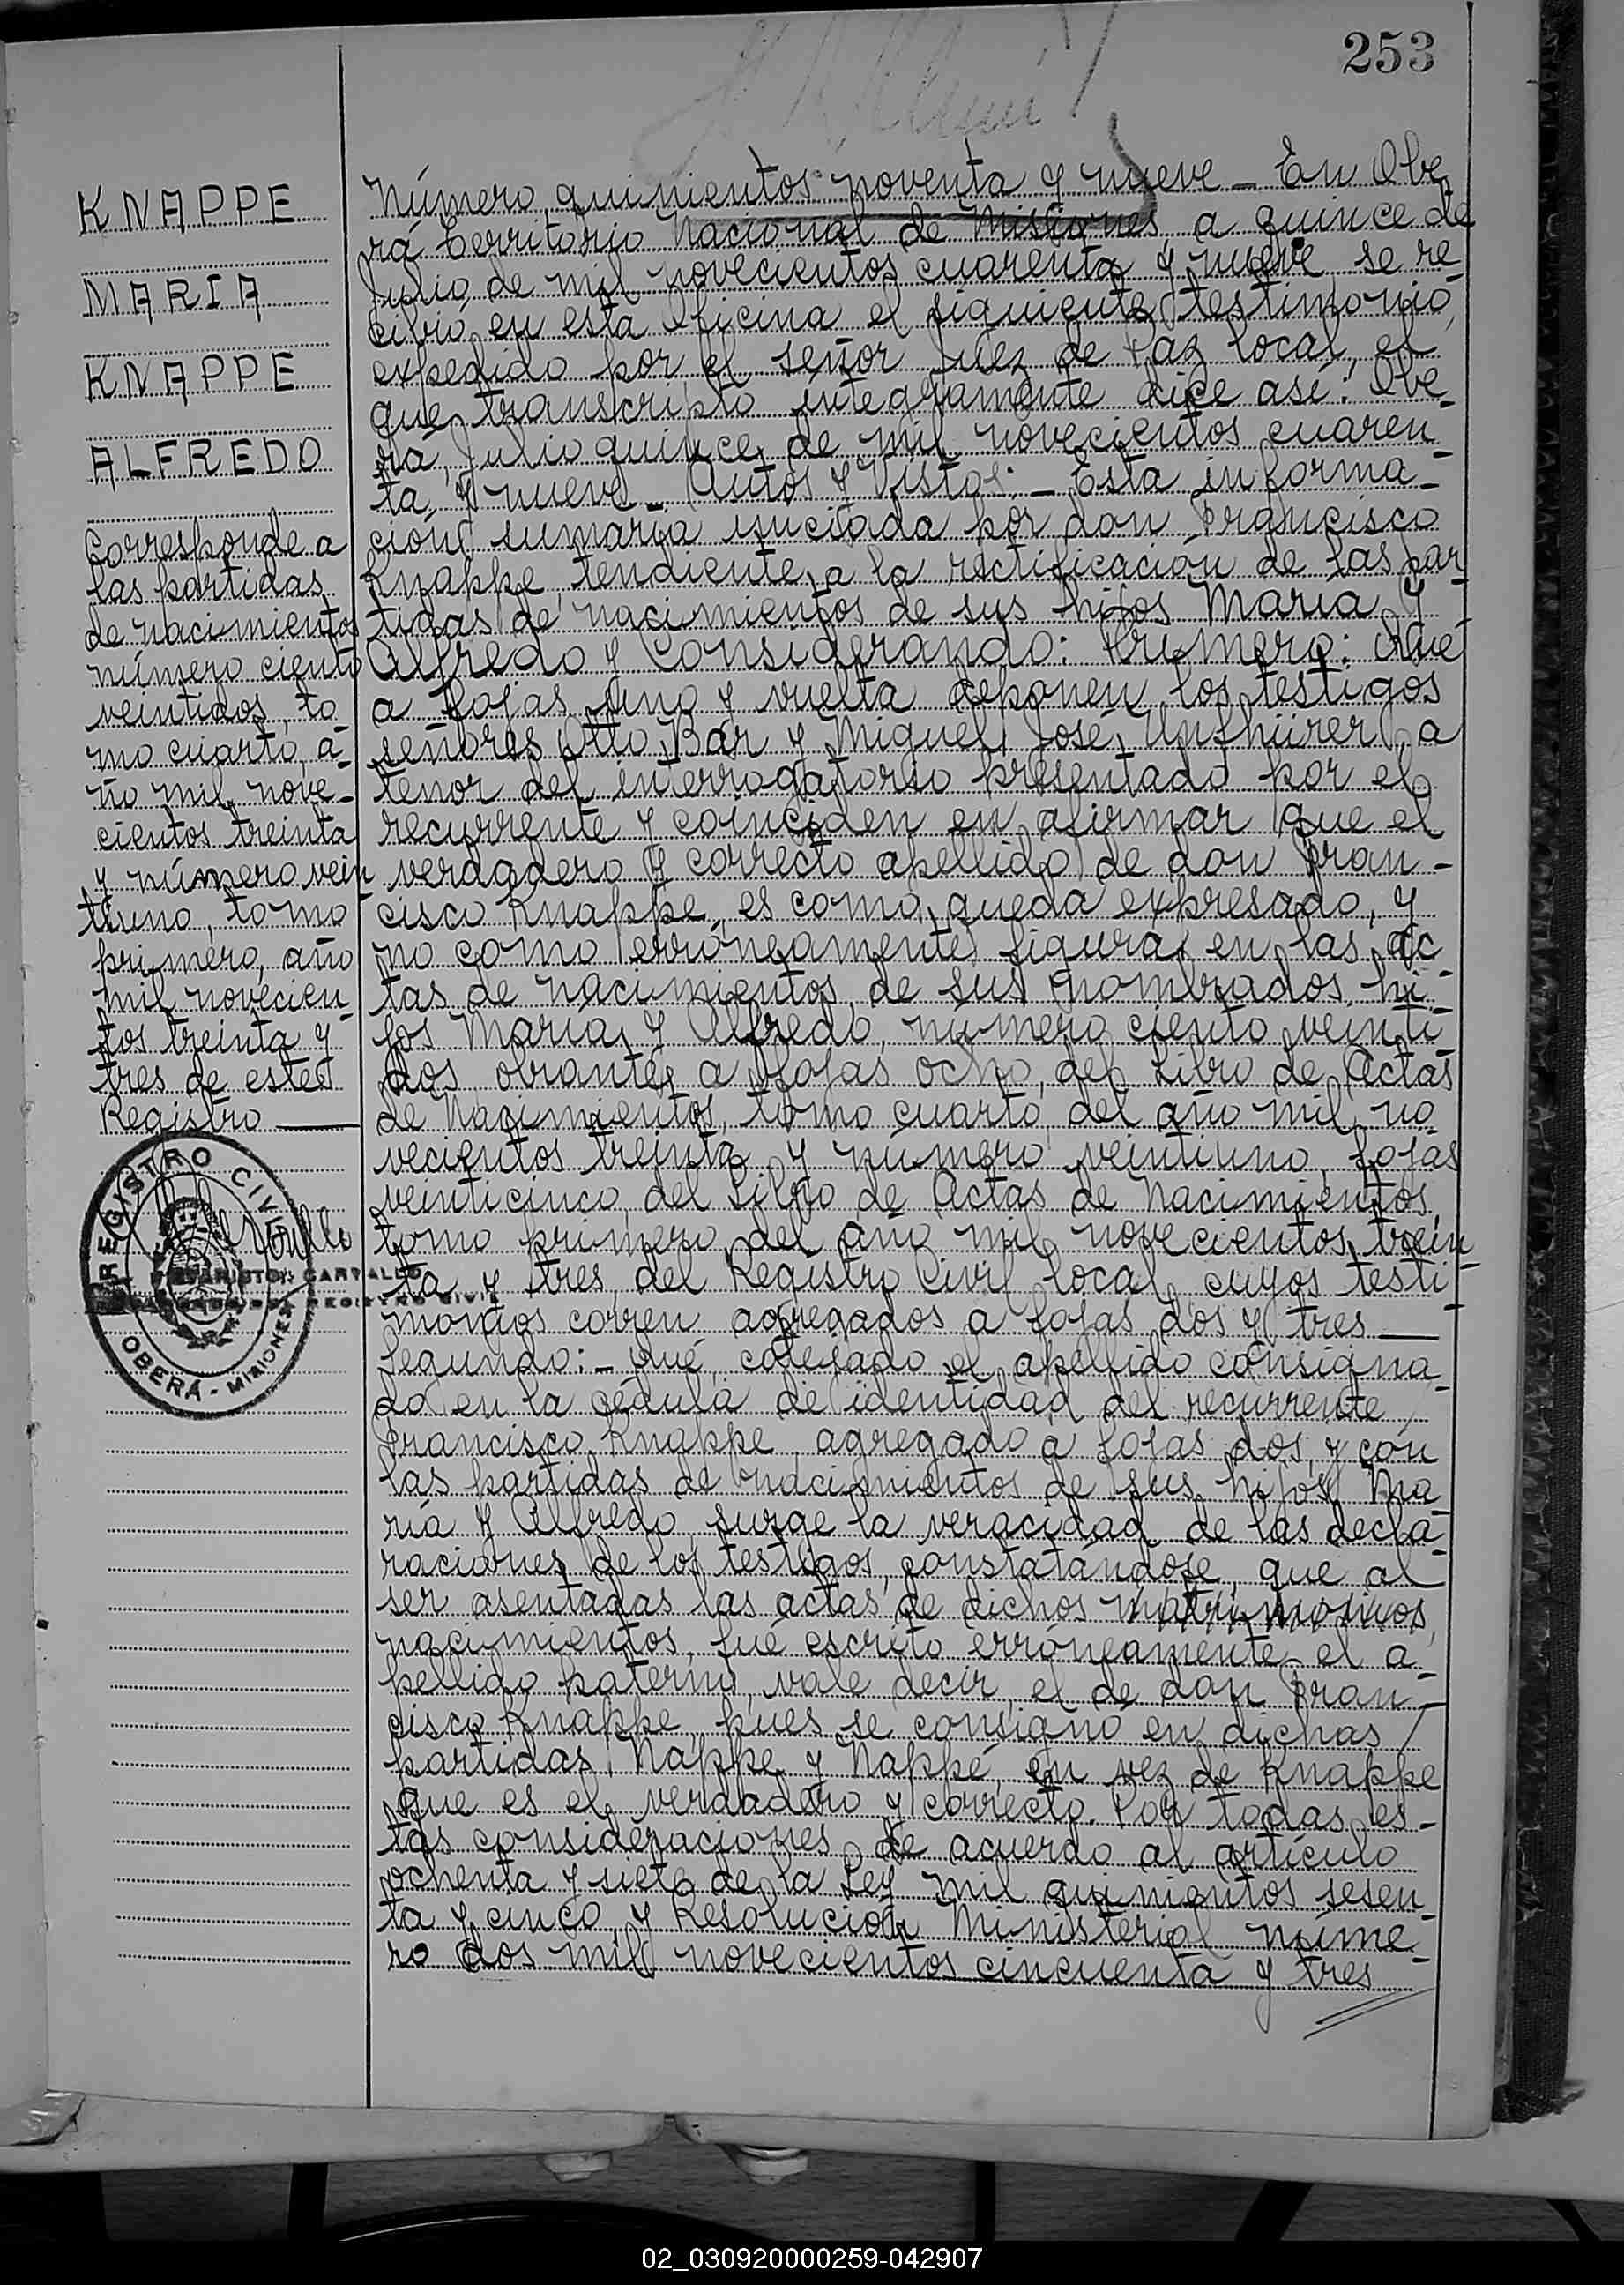 253
KNAPPE
MARIA
KNAPPE
ALFREDO
Corresponde a
las partidas
de nacimientos
número ciento
veintidos, to-
mo cuarto, a-
ño mil nove-
cientos treinta
y número vein
tiuno, tomo
primero, año
mil novecien-
tos treinta y
tres de este
Registro
REGISTRO CIVIL
EVARISTO CARVALLO
REGISTRO CIVIL
OBERÁ - MISIONES
Número quinientos noventa y nueve _ En Obe
rá Territorio Nacional de Misiones, a quince de
Julio, de mil novecientos cuarenta y nueve se re
cibió en esta Oficina el siguiente testimonio,
expedido por el señor Juez de Paz local, el
que transcripto íntegramente dice así: Obe-
rá, Julio quince de mil novecientos cuaren
ta y nueve _ Autos y Vistos: _ Esta informa-
ción sumaria suscitada por don Francisco
Knappe, tendiente a la rectificación de las par
tidas de nacimientos de sus hijos María y
Alfredo y Considerando: Primero: Qué
a fojas uno y vuelta deponen los testigos
señores Otto Bär y Miguel José Unfhürer, a
tenor del interrogatorio presentado por el
recurrente y coinciden en afirmar que el
verdadero y correcto apellido de don Fran-
cisco Knappe, es como queda expresado, y
no como erróneamente figura en las ac
tas de nacimientos de sus nombrados hi-
jos María y Alfredo, número ciento veinti-
dos obrante a fojas ocho, del Libro de Actas
de Nacimientos, tomo cuarto del año mil no
vecientos treinta y número veintiuno, fojas
veinticinco del Libro de Actas de Nacimientos,
tomo primero del año mil novecientos trein
ta y tres del Registro Civil local, cuyos testi-
monios corren agregados a fojas dos y tres
Segundo: _ Qué, cotejado el apellido consigna-
do en la cédula de identidad del recurrente
Francisco Knappe, agregado a fojas dos, y con
las partidas de nacimientos de sus hijos Ma
ría y Alfredo, surge la veracidad de las decla
raciones de los testigos, constatándose, que al
ser asentadas las actas de dichos matrimonios,
nacimientos, fué escrito erróneamente el a-
pellido paterno, vale decir, el de don Fran-
cisco Knappe, pues se consignó en dichas
partidas, Nappe y Nappé, en vez de Knappe
que es el verdadero y correcto. Por todas es-
tas consideraciones de acuerdo al artículo
ochenta y siete de la Ley mil quinientos sesen
ta y cinco y Resolución Ministerial núme-
ro dos mil novecientos cincuenta y tres
02_030920000259-042907